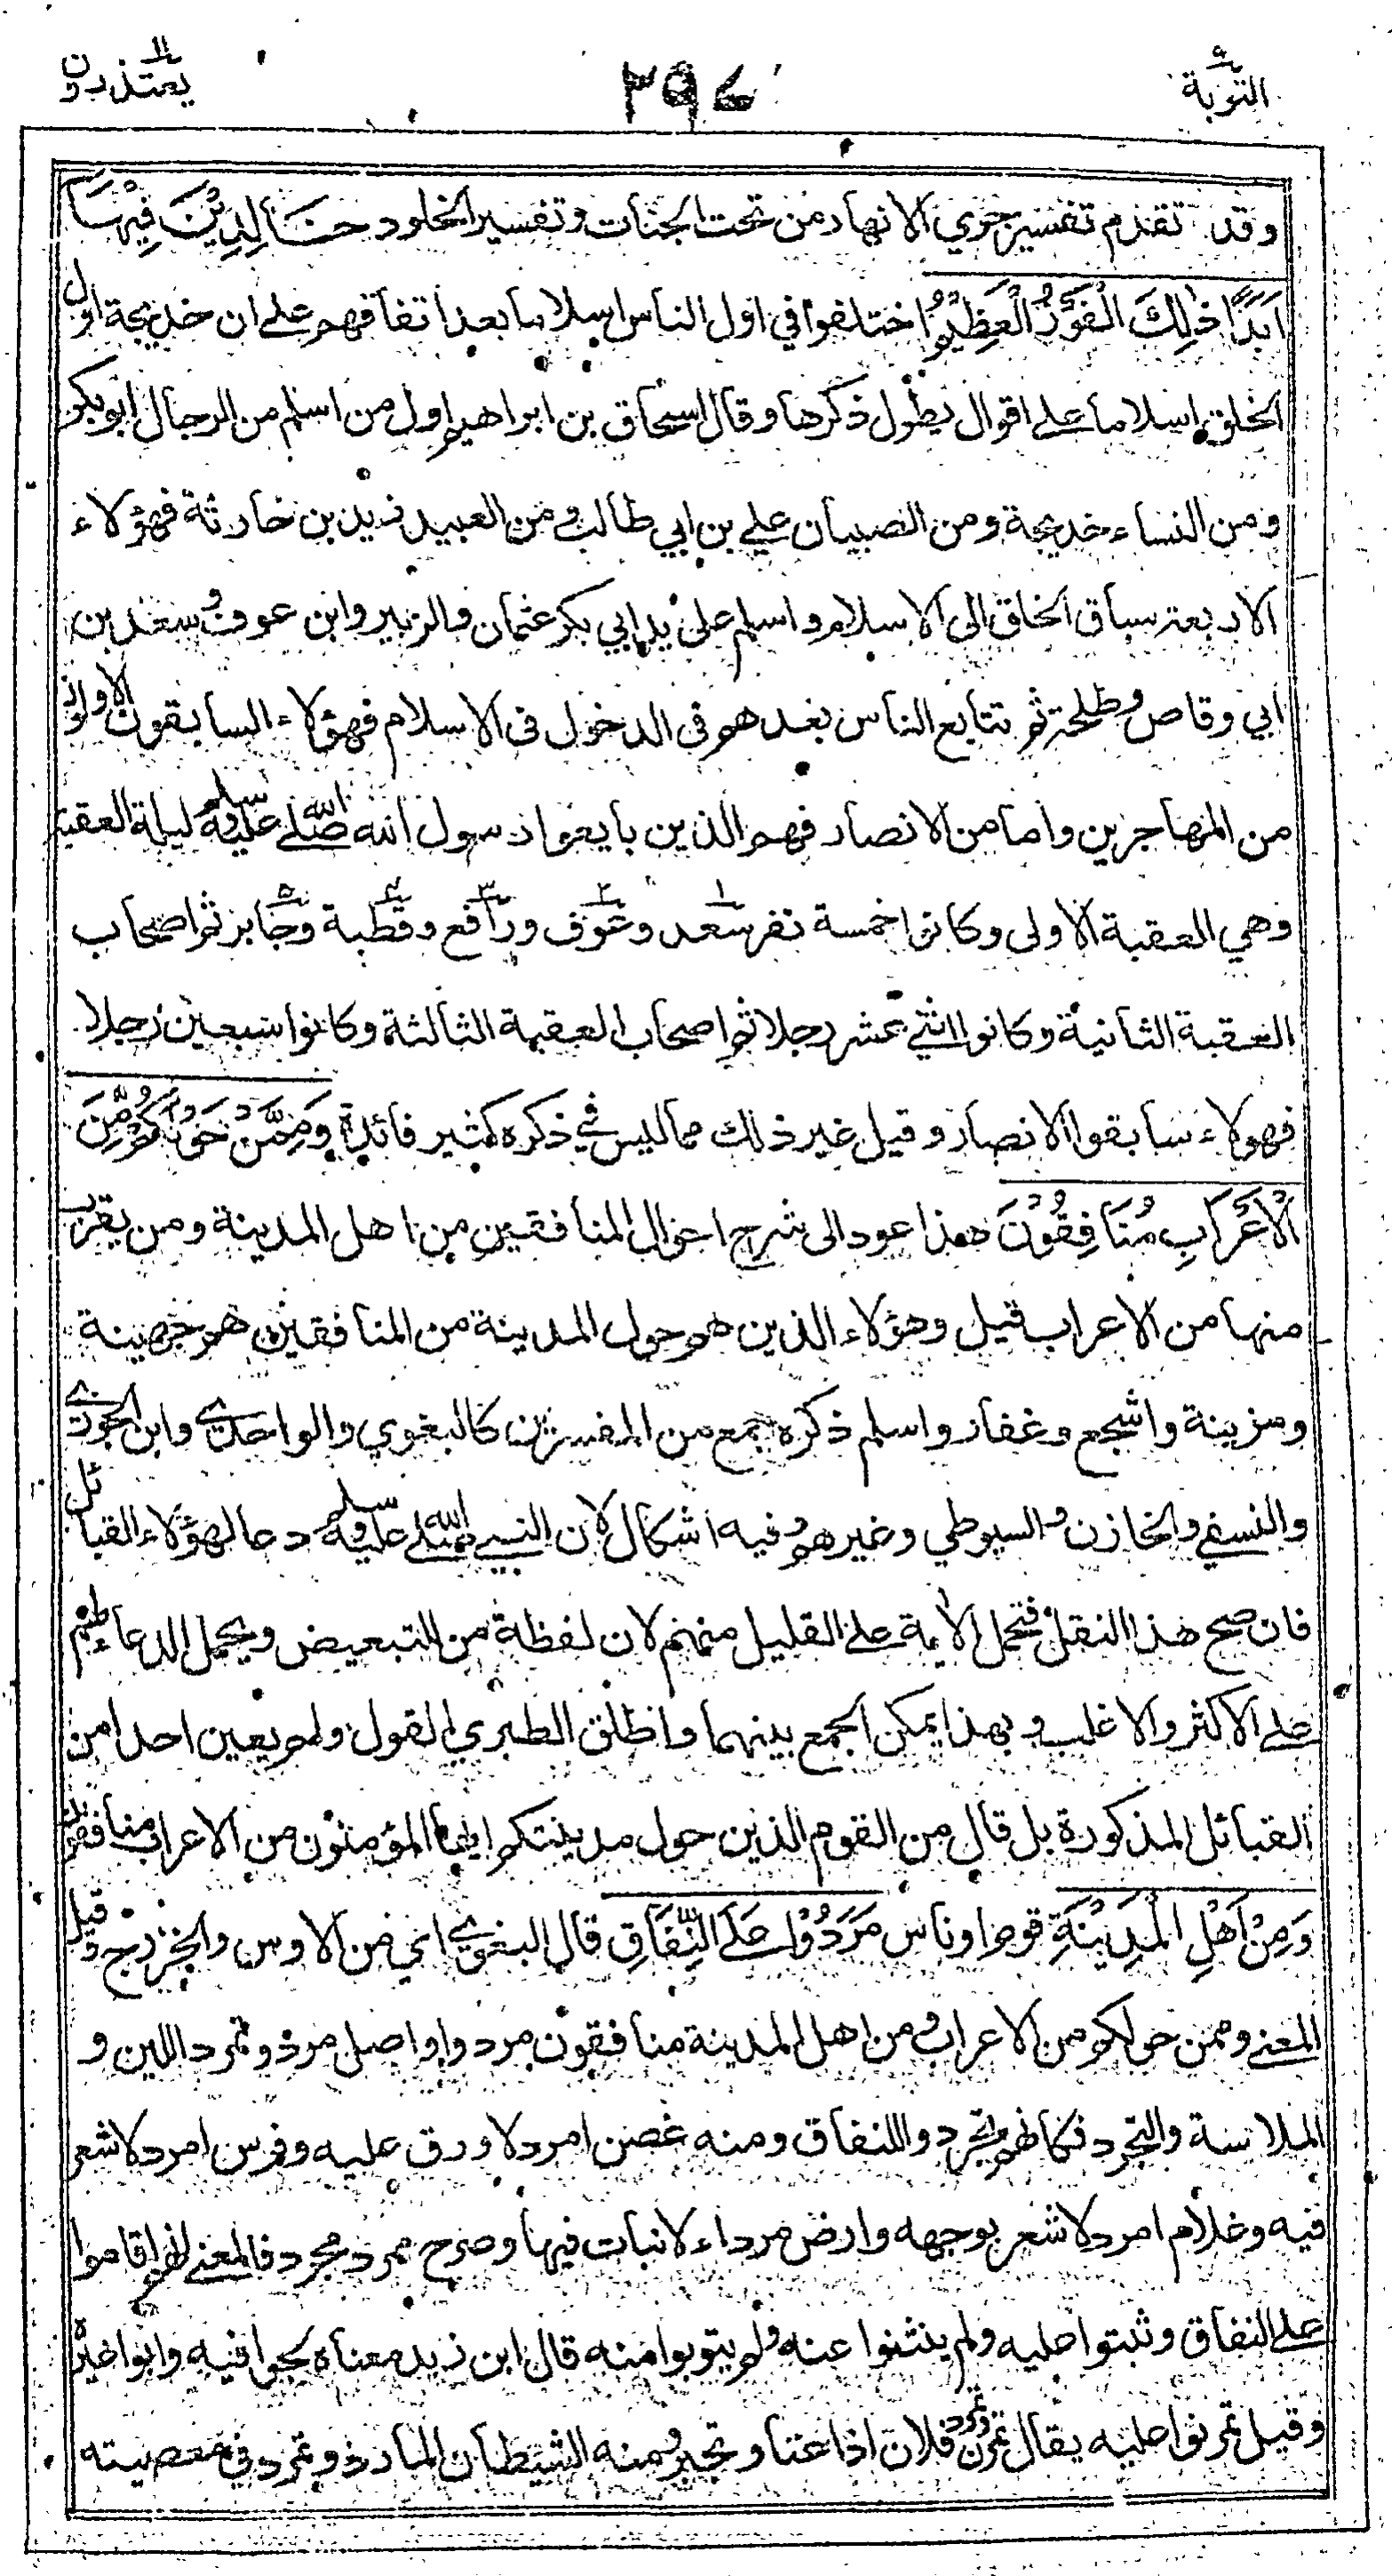 التوبة ٩
٣٩٤
يعتذرون ١١
وقد تقدم تفسير جري الانهار من تحت الجنات وتفسير الخلود خَالِدِيْنَ فِيْهَا
اَبَدًا ذٰلِكَ الْفَوْزُ الْعَظِيْمُ اختلفوا في اول الناس اسلاما بعد اتفاقهم على ان خديجة اول
الخلق اسلاما على اقوال يطول ذكرها وقال اسحاق بن ابراهيم اول من اسلم من الرجال ابو بكر
ومن النساء خديجة ومن الصبيان علي بن ابي طالب ومن العبيد زيد بن حارثة فهؤلاء
الاربعة سباق الخلق الى الاسلام واسلم على يد ابي بكر عثمان والزبير وابن عوف وسعد بن
ابي وقاص وطلحة ثم تتابع الناس بعدهم في الدخول في الاسلام فهؤلاء السابقون الاولون
من المهاجرين واما من الانصار فهم الذين بايعوا رسول الله صلى الله عليه وسلم ليلة العقبة
وهي العقبة الاولى وكانوا خمسة نفر سعد وعوف ورافع وقطبة وجابر ثم اصحاب
العقبة الثانية وكانوا اثني عشر رجلا ثم اصحاب العقبة الثالثة وكانوا سبعين رجلا
فهولاء سابقوا الانصار وقيل غير ذلك مما ليس في ذكره كثير فائدة وَمِمَّنْ حَوْلَكُمْ مِّنَ
الْاَعْرَابِ مُنَافِقُوْنَ هذا عود الى شرح احوال المنافقين من اهل المدينة ومن يقرب
منها من الاعراب قيل وهؤلاء الذين هم حول المدينة من المنافقين هم جهينة
ومزينة واشجع وغفار واسلم ذكره جمع من المفسرين كالبغوي والواحدي وابن الجوزي
والنسفي والخازن والسيوطي وغيرهم وفيه اشكال لان النبي صلى الله عليه وسلم دعا لهؤلاء القبائل
فان صح هذا النقل فتحمل الاية على القليل منهم لان لفظة من للتبعيض ويحمل الدعاء لهم
على الاكثر والاغلب وبهذا يمكن الجمع بينهما واطلق الطبري القول ولم يعين احدا من
القبائل المذكورة بل قال من القوم الذين حول مدينتكم ايها المؤمنون من الاعراب منافقون
وَمِنْ اَهْلِ الْمَدِيْنَةِ قوم او ناس مَرَدُوْا عَلَى النِّفَاقِ قال البغوي اي من الاوس والخزرج وقيل
المعنى وممن حولكم من الاعراب ومن اهل المدينة منافقون مردوا واصل مرد وتمرد اللين و
الملاسة والتجرد فكانهم تجردوا للنفاق ومنه غصن امرد لا ورق عليه وفرس امرد لا شعر
فيه وغلام امرد لا شعر بوجهه وارض مرداء لا نبات فيها وصرح ممرد مجرد فالمعنى انهم اقاموا
على النفاق وثبتوا عليه ولم ينثنوا عنه ولم يتوبوا منه قال ابن زيد معناه لجوا فيه وابوا غيره
وقيل تمرنوا عليه يقال تمرن وتمرد فلان اذا عتا وتجبر ومنه الشيطان المارد وتمرد في معصيته